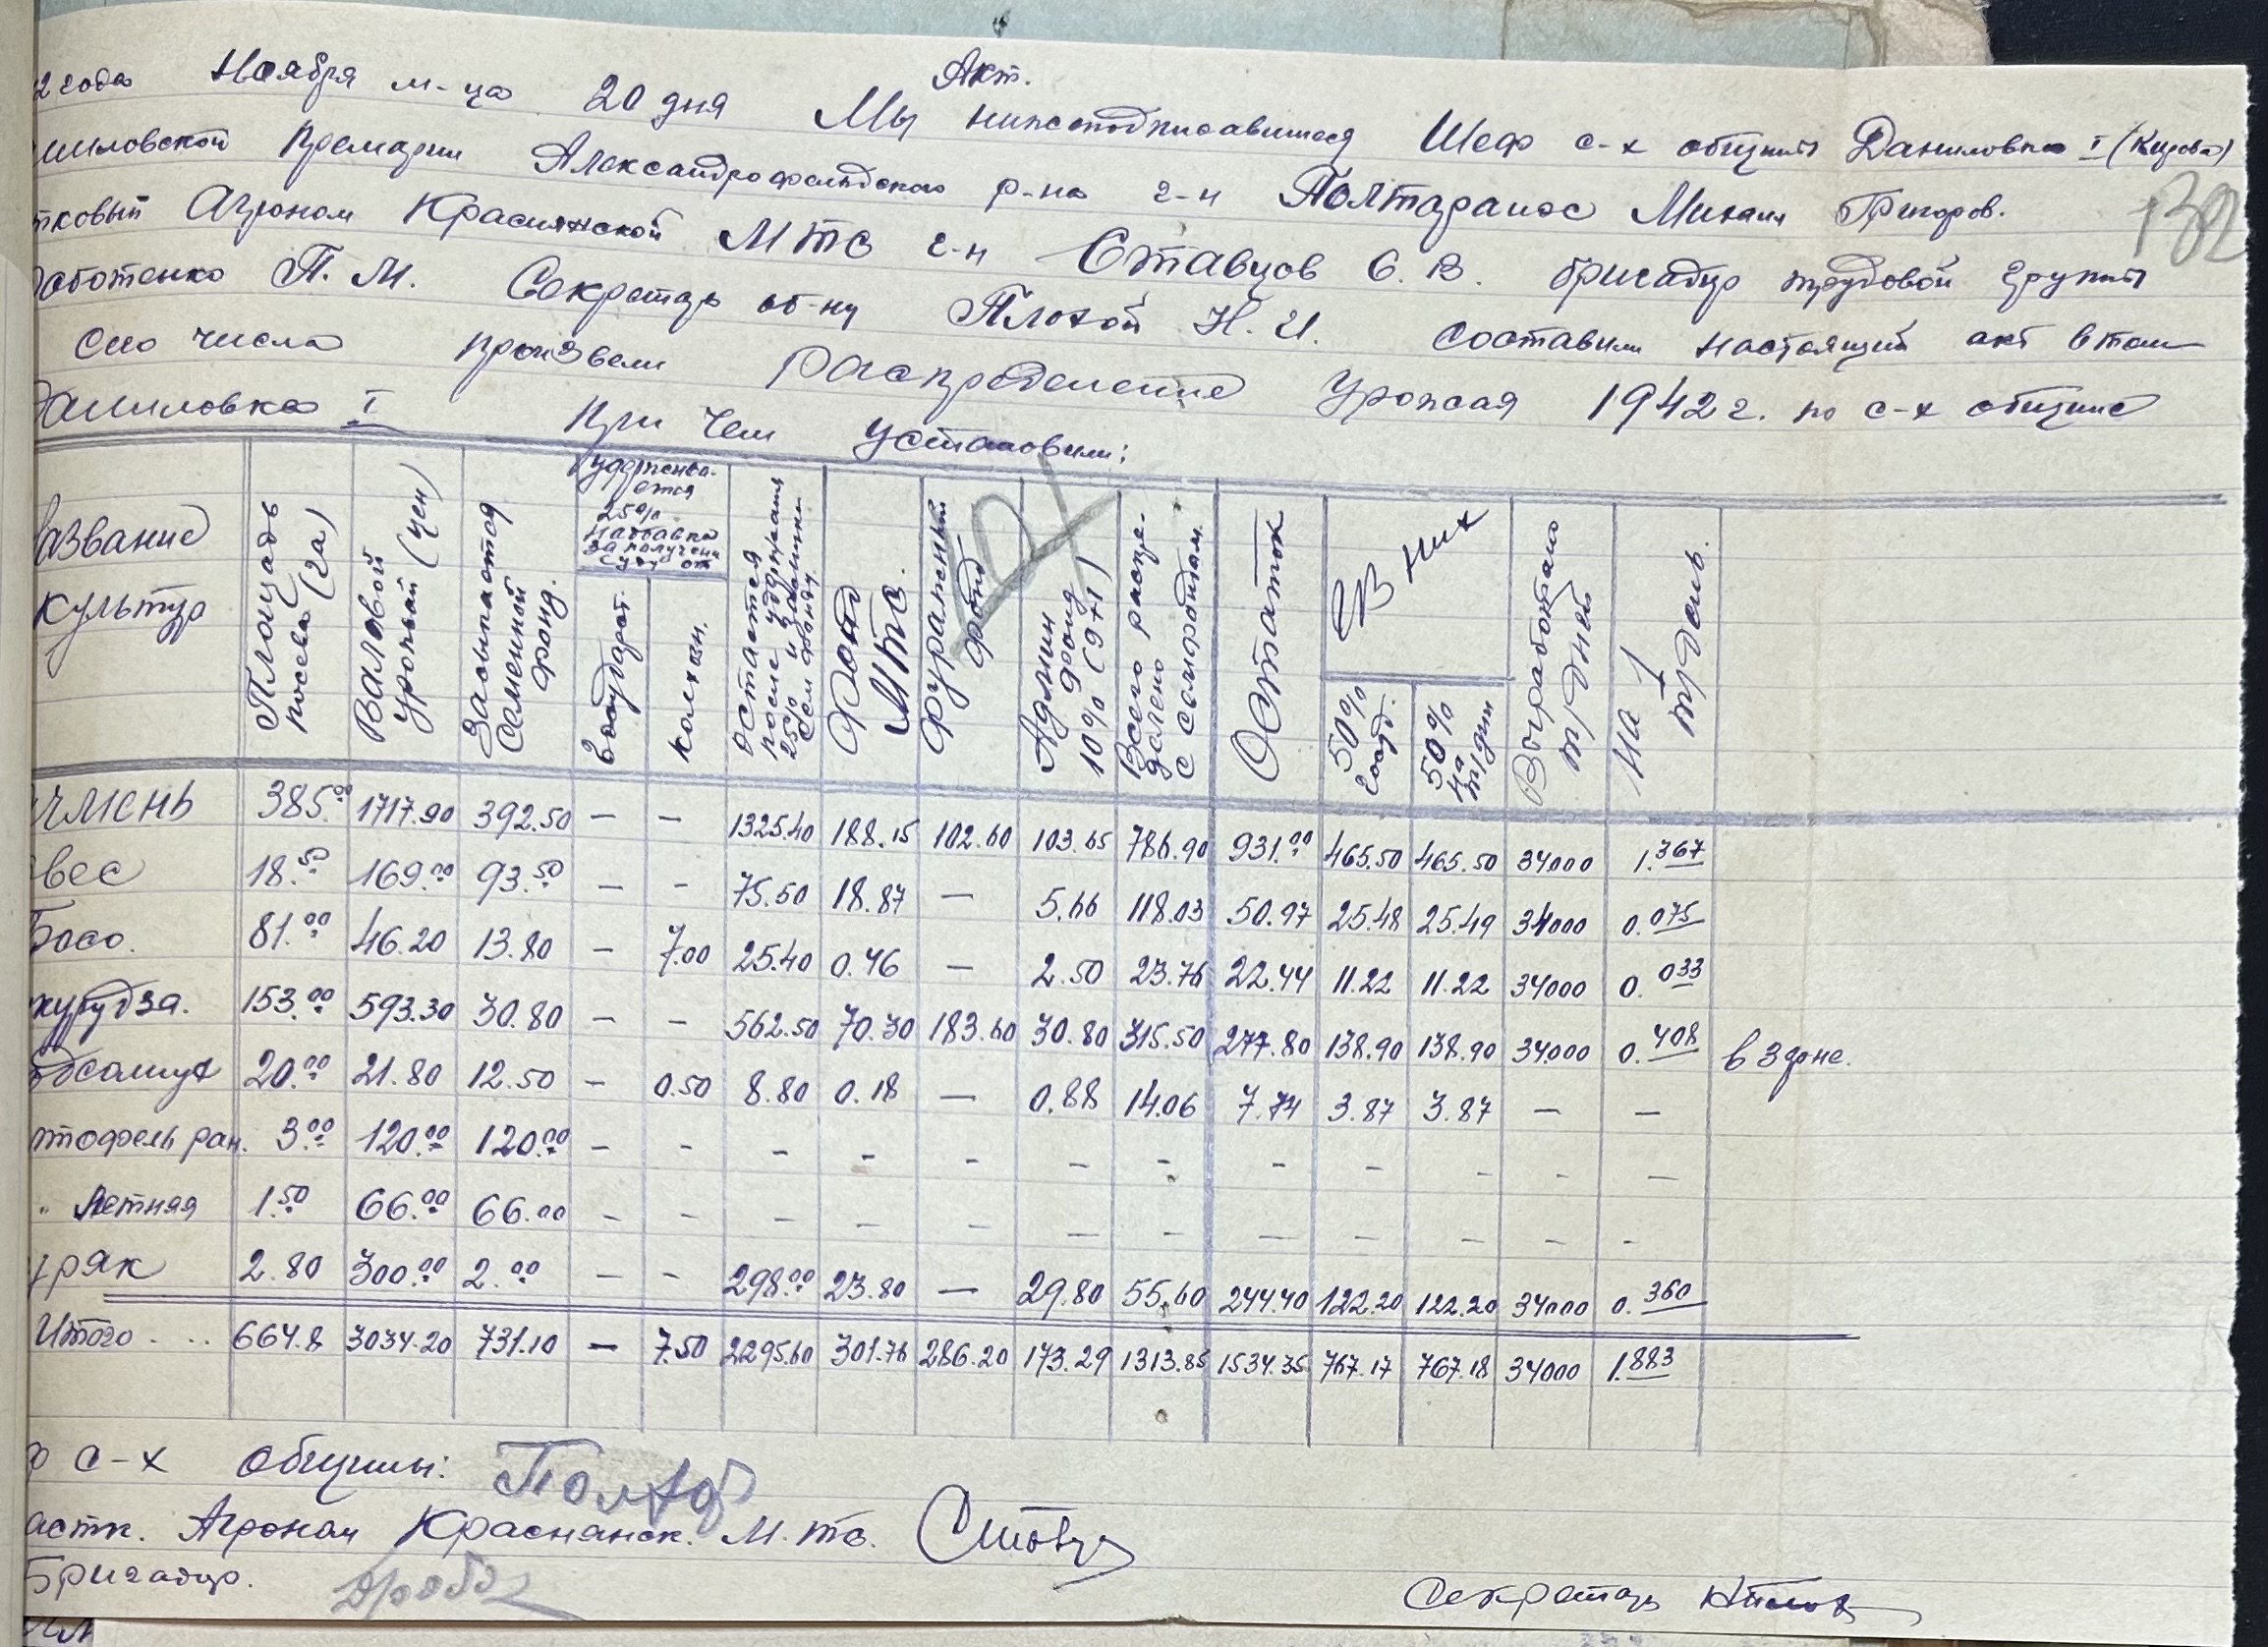 Акт.
2 года Ноября м-ца 20 дня Мы нижеподписавшиеся Шеф с-х общины Даниловка I (Кирова)
ниловской Примарии Александрофельдского р-на г-н Полтарапос Михаил Григоров.
тковый Агроном Краснянской МТС г-н Ставцов С. В. бригадир трудовой группы
оботенко П. М. Секретарь об-ны Плохой Н. И. составили настоящий акт в том
сно числа произвели распределение урожая 1942 г. по с-х общине
Даниловка I При чем установили:
132
азвание культур | Площадь посева (га) | Валовой урожай (цен) | Засыпается Семенной фонд. | Удерживается 25% надбавка за получен. суду от | государ. | колхозн. | Остается после удержания 25% и засыпки сем фонду. | Фонд МТС. | Фуражный фонд | Админ фонд 10% (9+1) | Всего распределено с семфондом. | Остаток | Из них | 50% госуд. | 50% на тр/дни | Выработано тр/дней | На 1 тр/день.
чмень 385.00 1717.90 392.50 — — 1325.40 188.15 102.60 103.65 786.90 931.00 465.50 465.50 34000 1.367
вес 18.50 169.00 93.50 — - 75.50 18.87 — 5.66 118.03 50.97 25.48 25.49 34000 0.075
осо. 81.00 46.20 13.80 - 7.00 25.40 0.46 — 2.50 23.76 22.44 11.22 11.22 34000 0.033
курудза. 153.00 593.30 30.80 — - 562.50 70.30 183.60 30.80 315.50 277.80 138.90 138.90 34000 0.408 в зерне.
дсолнух 20.00 21.80 12.50 - 0.50 8.80 0.18 — 0.88 14.06 7.74 3.87 3.87 — —
тофель ран. 3.00 120.00 120.00 - - - - - - - - - - - —
" Летняя 1.50 66.00 66.00 - - - - — — - — — — — -
уряк 2.80 300.00 2.00 — - 298.00 23.80 — 29.80 55.60 244.40 122.20 122.20 34000 0.360
Итого . .. 664.8 3034.20 731.10 — 7.50 2295.60 301.76 286.20 173.29 1313.85 1534.35 767.17 767.18 34000 1.883
с-х общины: Полтар
астк. Агроном Краснянск. М.тс. Ставц
Бригадир.
Секретарь